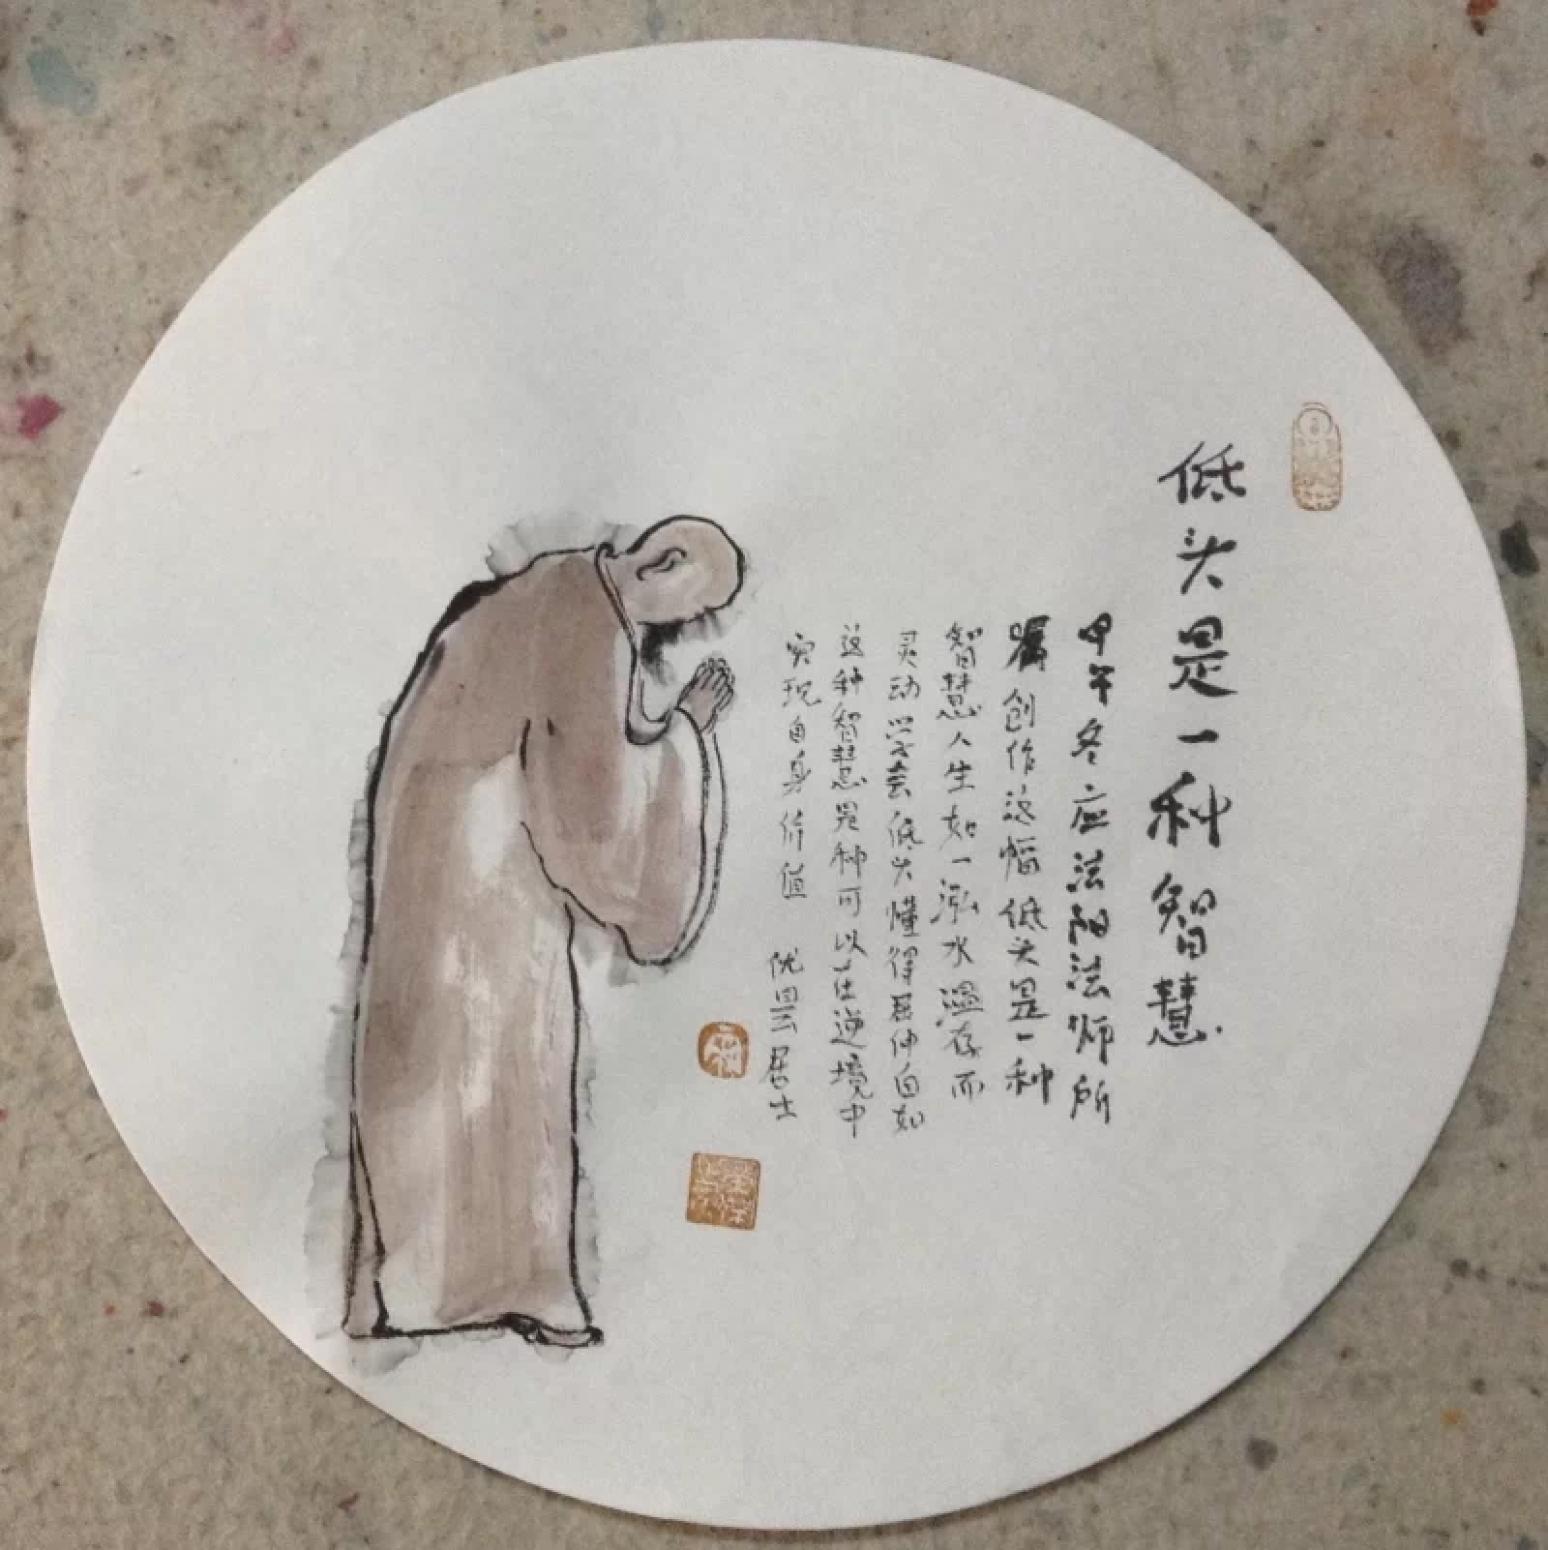 低头是一种智慧
甲午冬应法阳法师所
嘱创作这幅低头是一种
智慧人生如一泓水温存而
灵动学会低头懂得屈伸自如
这种智慧是种可以在逆境中
实现自身价值
优昙居士